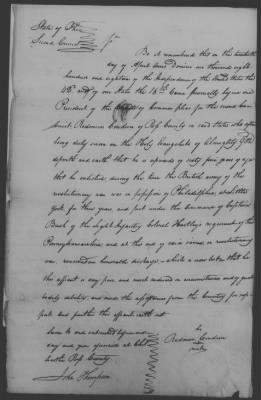 State of Ohio
Second Circuit
Be it remembered that on the
day of April Anno Domini one thousand eight
hundred and eighteen of the Independence of the United States the
42nd and of our State the 16th Came personally before me
President of the Common pleas for the second Cir-
cuit Redmon Condon of Ross County in said State who after
being duly sworn on the Holy Evangelists of Almighty God
deposeth and saith that he is upwards of sixty five years of age
that he enlisted during the time the British army of the
revolutionary war was in possession of Philadelphia at Little
York for three years and put under the Command of Captain
Bush of the Light Infantry Colonel Hartley's regiment of the
Pennsylvania line and at the end of said service, or revolutionary
war, received an honorable discharge, which is now lost that he
this affiant is very poor and much reduced in circumstances and
bodily debility, and needs the assistance from his Country for sup-
port and further this affiant saith not
Sworn to and subscribed before me
day and year aforesaid at Chil-
licothe Ross County
John Thompson
his
Redmon Condon
mark